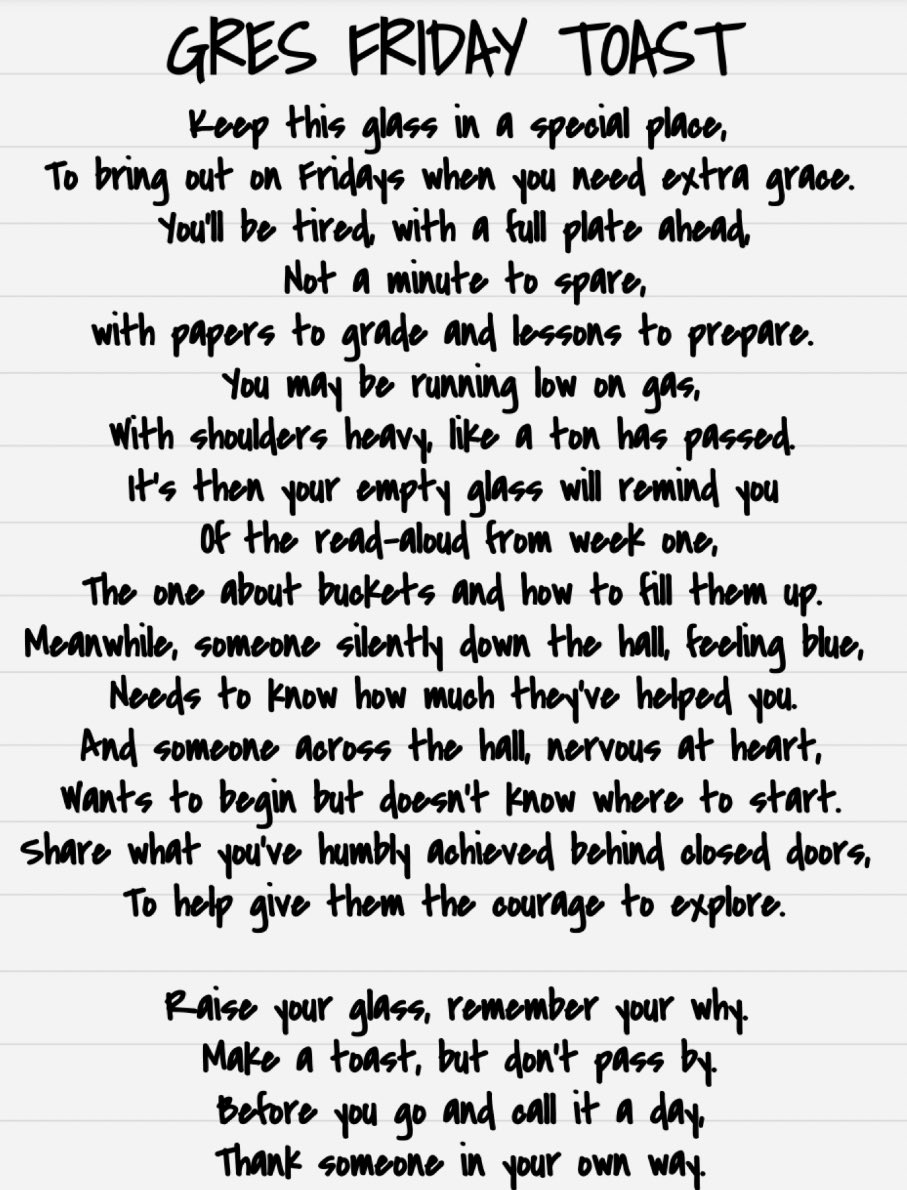 GRES FRIDAY TOAST
Keep this glass in a special place,
To bring out on Fridays when you need extra grace.
You'll be tired, with a full plate ahead,
Not a minute to spare,
with papers to grade and lessons to prepare.
You may be running low on gas,
With shoulders heavy, like a ton has passed.
It's then your empty glass will remind you
Of the read-aloud from week one,
The one about buckets and how to fill them up.
Meanwhile, someone silently down the hall, feeling blue,
Needs to know how much they've helped you.
And someone across the hall, nervous at heart,
Wants to begin but doesn't know where to start.
Share what you've humbly achieved behind closed doors,
To help give them the courage to explore.
Raise your glass, remember your why.
Make a toast, but don't pass by.
Before you go and call it a day,
Thank someone in your own way.